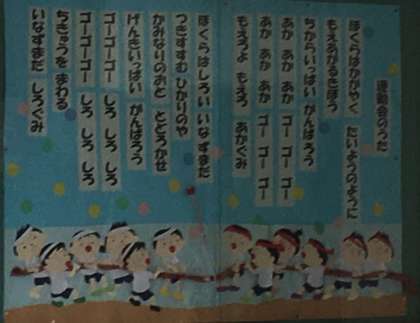 運動会のうた
ぼくらはかがやく たいようのように
もえあがるきぼう
ちからいっぱい がんばろう
あか あか あか ゴー ゴー ゴー
あか あか あか ゴー ゴー ゴー
もえろよ もえろ あかぐみ
ぼくらはしろい いなずまだ
つきすすむ ひかりのや
かみなりのおと とどろかせ
げんきいっぱい がんばろう
ゴーゴーゴー しろ しろ しろ
ゴーゴーゴー しろ しろ しろ
ちきゅうを まわる
いなずまだ しろぐみ